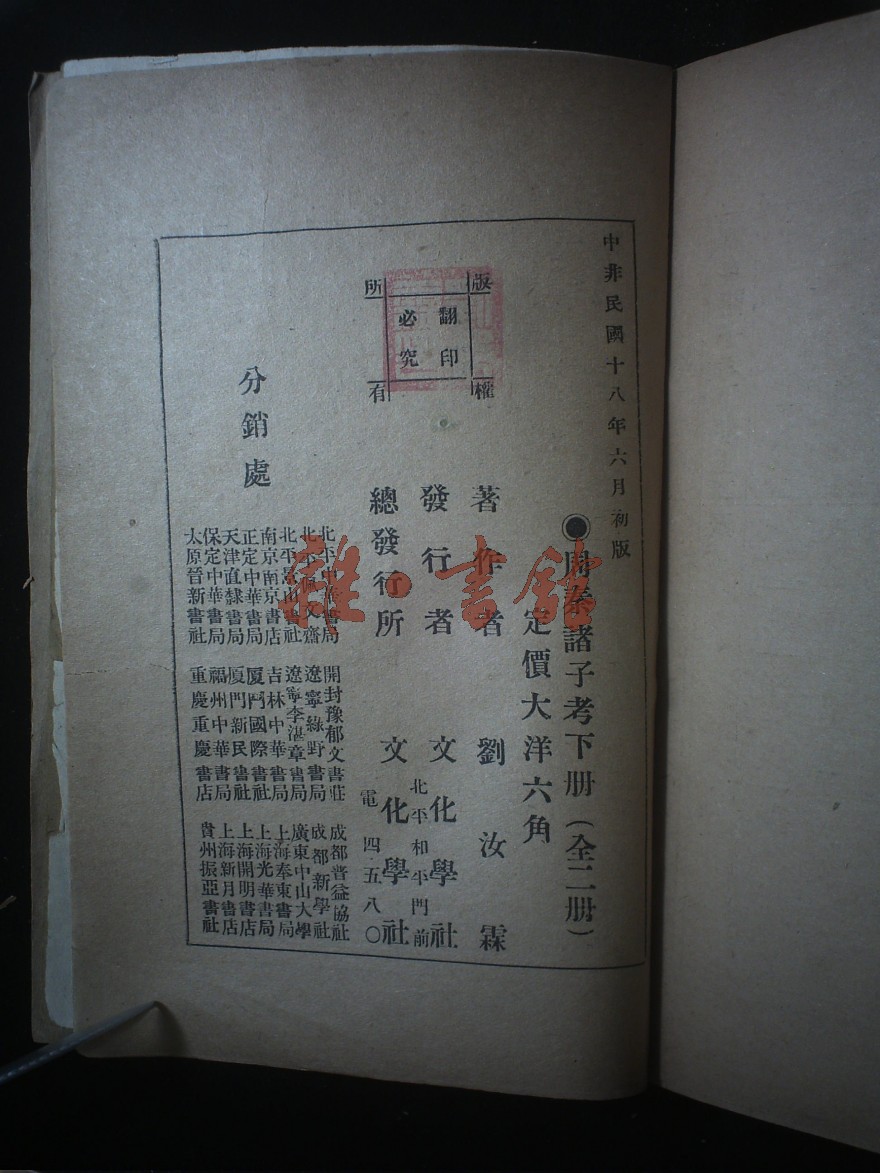 中非民國十八年六月初版
●周秦諸子考下册（全二册）
定價大洋六角
著作者 劉汝霖
發行者 文化學社
北平和平門前
總發行所 文化學社
電四·五八〇
版權所有
翻印必究
分銷處
北平中華書局
北平佩文齋
北平景山書社
南京南京書店
正定中華書局
天津直隸書局
保定中華書局
太原晉新書社
開封豫郁文書莊
遼寧綠野書局
遼寧李湛章書局
吉林中華書局
厦門國際書社
厦門新民書社
福州中華書局
重慶重慶書店
成都普益協社
成都新學社
廣東中山大學
上海奉東書局
上海光華書局
上海開明書店
上海新月書店
貴州振亞書社
雜·書館